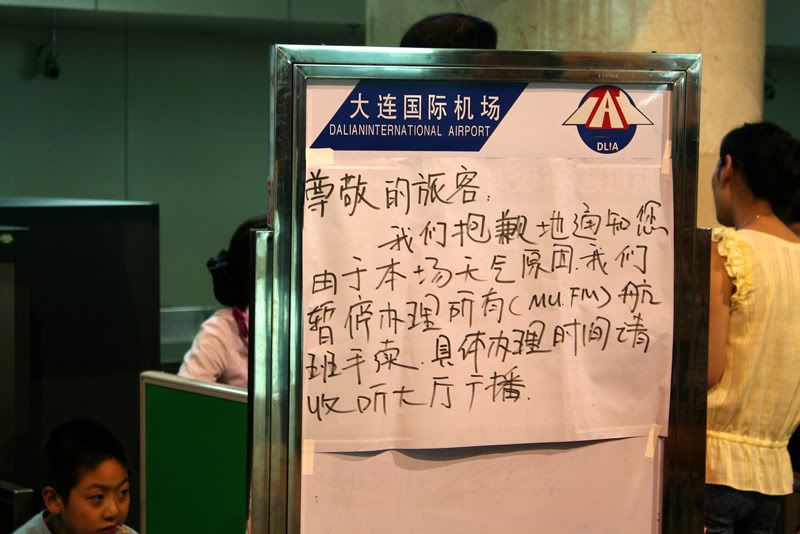 大连国际机场
DALIANINTERNATIONAL AIRPORT
DLIA
尊敬的旅客：
我们抱歉地通知您
由于本场天气原因.我们
暂停办理所有(MU.FM)航
班手续.具体办理时间请
收听大厅广播.